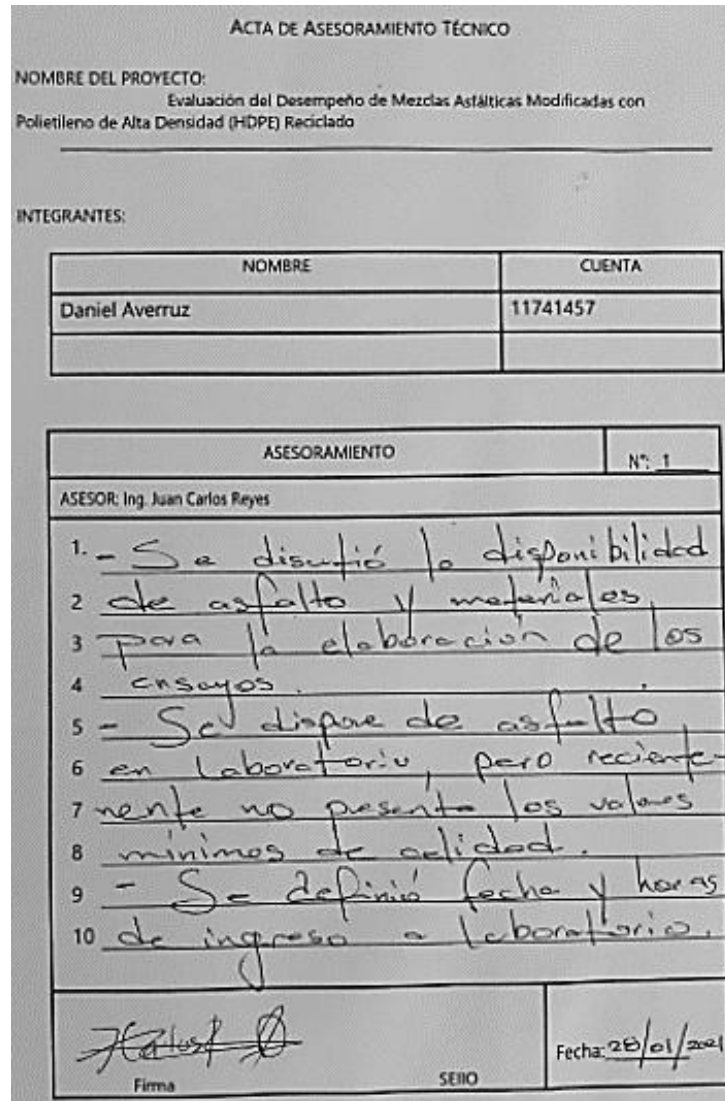 ACTA DE ASESORAMIENTO TÉCNICO
NOMBRE DEL PROYECTO:
Evaluación del Desempeño de Mezclas Asfálticas Modificadas con
Polietileno de Alta Densidad (HDPE) Reciclado
INTEGRANTES:
NOMBRE CUENTA
Daniel Averruz 11741457
ASESORAMIENTO N°: 1
ASESOR: Ing. Juan Carlos Reyes
1. - Se discutió la disponibilidad
2 de asfalto y materiales
3 para la elaboración de los
4 ensayos.
5 - Se dispone de asfalto
6 en laboratorio, pero reciente-
7 mente no presenta los valores
8 mínimos de calidad.
9 - Se definió fecha y horas
10 de ingreso a laboratorio.
Fecha: /01/2021
Firma SEllO